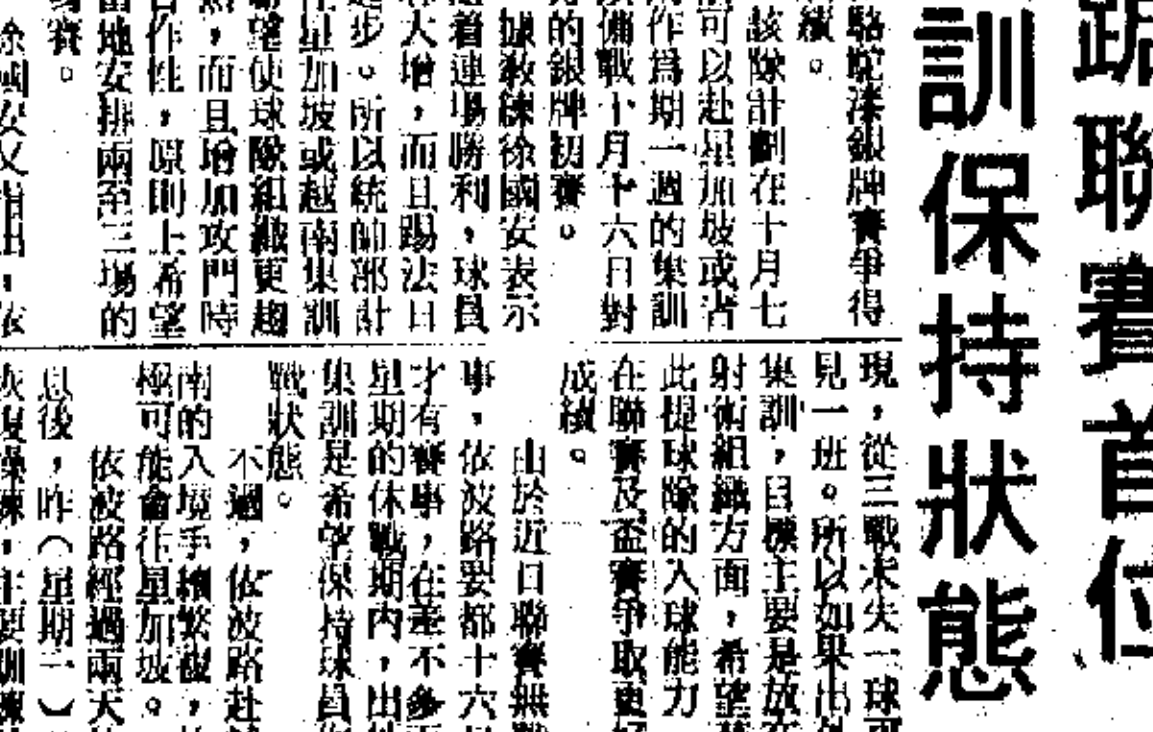 踞聯賽首位
訓保持狀態
駱駝漆銀牌賽爭得
績。
該隊計劃在十月七
可以赴星加坡或者
作爲期一週的集訓
備戰十月十六日對
的銀牌初賽。
據敎練徐國安表示
着連場勝利，球員
大增，而且踢法日
步。所以統帥部計
星加坡或越南集訓
望使球隊組織更趨
，而且增加攻門時
作性，原則上希望
地安排兩至三場的
賽。
徐國安又指出，依
現，從三戰未失一球可
見一班。所以如果出外
集訓，目標主要是放在
射術組織方面，希望
此提球隊的入球能力
在聯賽及盃賽爭取更好
成績。
由於近日聯賽無戰
事，依波路要都十六日
才有賽事，在差不多兩
星期的休戰期內，出
集訓是希望保持球員
戰狀態。
不過，依波路赴
南的入境手續繁複，
極可能會往星加坡。
依波路經過兩天
息後，昨（星期一）
恢復操練，主要訓練